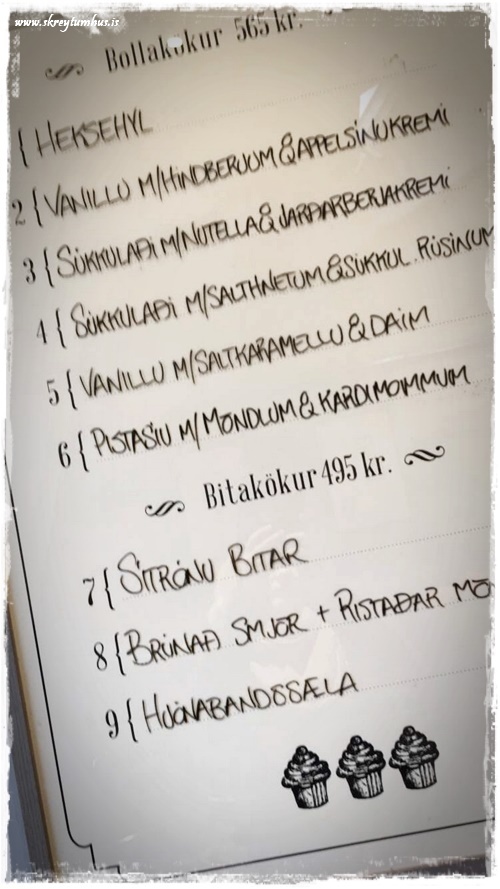 www.skreytumhus.is
Bollakökur 565 kr.
{ HEKSEHYL
2 { VANILLU M/HINDBERJUM & APPELSÍNUKREMI
3 { SÚKKULAÐI M/NUTELLA & JARÐARBERJAKREMI
4 { SÚKKULAÐI M/SALTHNETUM & SÚKKUL. RÚSÍNUM
5 { VANILLU M/SALTKARAMELLU & DAIM
6 { PISTASÍU M/ MÖNDLUM & KARDIMOMMUM
Bitakökur 495 kr.
7 { SÍTRÓNU BITAR
8 { BRÚNAÐ SMJÖR + RISTAÐAR
9 { HJÓNABANDSSÆLA